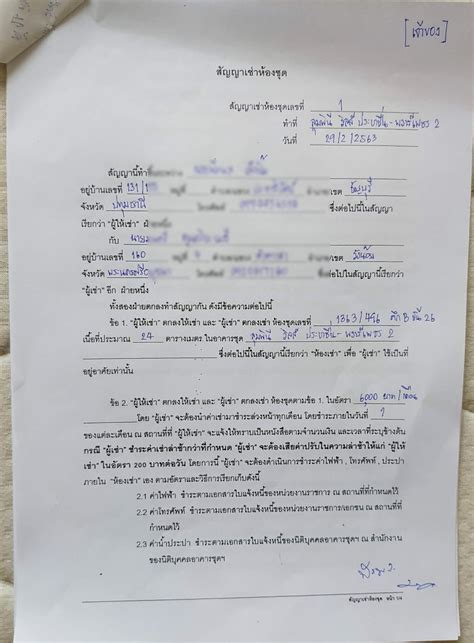 [เจ้าของ]
สัญญาเช่าห้องชุด
สัญญาเช่าห้องชุดเลขที่ 1
ทำที่ ลุมพินี วิลล์ ประชาชื่น-พงษ์เพชร 2
วันที่ 29/2/2563
สัญญานี้ทำ
อยู่บ้านเลขที่ 131/ เขต ธัญบุรี
จังหวัด ปทุมธานี ซึ่งต่อไปนี้ในสัญญา
เรียกว่า "ผู้ให้เช่า" ฝ่
กับ
อยู่บ้านเลขที่ 160 เขต วังน้อย
จังหวัด ต่อไปในสัญญานี้เรียกว่า
"ผู้เช่า" อีก ฝ่ายหนึ่ง
ทั้งสองฝ่ายตกลงทำสัญญากัน ดังมีข้อความต่อไปนี้
ข้อ 1. "ผู้ให้เช่า" ตกลงให้เช่า และ "ผู้เช่า" ตกลงเช่า ห้องชุดเลขที่ 1363/496 ตึก B ชั้น 26
เนื้อที่ประมาณ 24 ตารางเมตร ในอาคารชุด ลุมพินี วิลล์ ประชาชื่น-พงษ์เพชร 2
ซึ่งต่อไปนี้ในสัญญานี้เรียกว่า "ห้องเช่า" เพื่อ "ผู้เช่า" ใช้เป็นที่
อยู่อาศัยเท่านั้น
ข้อ 2. "ผู้ให้เช่า" ตกลงให้เช่า และ "ผู้เช่า" ตกลงเช่า ห้องชุดตามข้อ 1. ในอัตรา 6,000 บาท/เดือน
โดย "ผู้เช่า" จะต้องนำค่าเช่ามาชำระล่วงหน้าทุกเดือน โดยชำระภายในวันที่ 1
ของแต่ละเดือน ณ สถานที่ที่ "ผู้ให้เช่า" จะแจ้งให้ทราบเป็นหนังสือตามจำนวนเงิน และเวลาที่ระบุข้างต้น
กรณี "ผู้เช่า" ชำระค่าเช่าล่าช้ากว่าที่กำหนด "ผู้เช่า" จะต้องเสียค่าปรับในความล่าช้าให้แก่ "ผู้ให้
เช่า" ในอัตรา 200 บาทต่อวัน โดยการนี้ "ผู้เช่า" จะต้องดำเนินการชำระค่าไฟฟ้า , โทรศัพท์ , ประปา
ภายใน "ห้องเช่า" เอง ตามอัตราและวิธีการเรียกเก็บดังนี้
2.1 ค่าไฟฟ้า ชำระตามเอกสารใบแจ้งหนี้ของหน่วยงานราชการ ณ สถานที่ที่กำหนดไว้
2.2 ค่าโทรศัพท์ ชำระตามเอกสารใบแจ้งหนี้ของหน่วยงานราชการ/เอกชน ณ สถานที่ที่
กำหนดไว้
2.3 ค่าน้ำประปา ชำระตามเอกสารใบแจ้งหนี้ของนิติบุคคลอาคารชุดฯ ณ สำนักงาน
ของนิติบุคคลอาคารชุดฯ
สัญญาเช่าห้องชุด หน้า 1/4